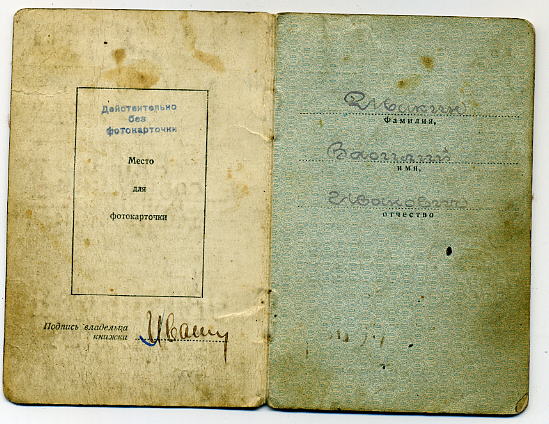 Действительно
без
фотокарточки
Место
для
фотокарточки
Подпись владельца
книжки
Ивакин
фамилия,
Василий
имя,
Иванович
отчество